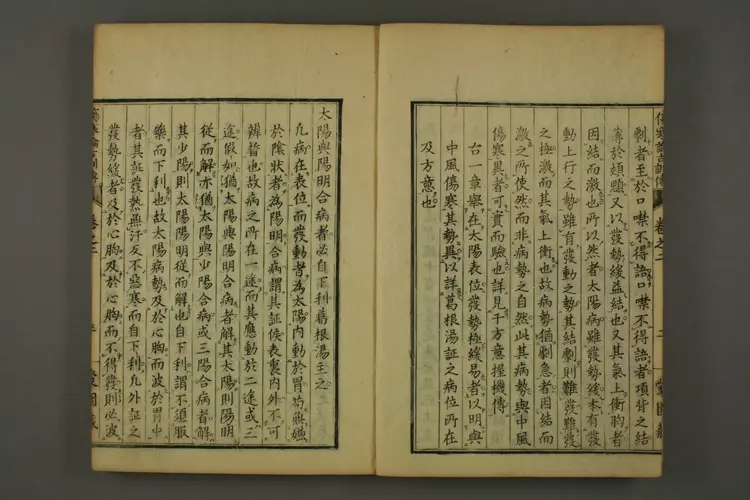 傷寒論古訓傳 卷之二
劇者至於口噤不得語口噤不得語者項背之結
薄於頰題又以發勢緩益結也又其氣上衝胸者
因結而激也所以然者太陽病雖發勢緩本有發
動上行之勢雖有發動之勢其結劇則難發難發
之極激而其氣上衝也故病勢猶劇急者因結而
激之所使然而非病勢之自然此其病勢與中風
傷寒異者可實而驗也詳見于方意握機傳
右一章舉在太陽表位發勢極緩易者以明與
中風傷寒其勢異以詳葛根湯証之病位所在
及方意也
太陽與陽明合病者必自下利葛根湯主之
凡病在表位而發動者為太陽内動於胃苟無繇
於陰狀者為陽明合病謂其証候表裏内外不可
辨晢也故病之所在一途而其應動於二途或三
途假如猶太陽與陽明合病者解其太陽則陽明
從而解亦猶太陽與少陽合病或三陽合病者解
其少陽則太陽陽明從而解也自下利謂不須服
藥而下利也故太陽病勢及於心胸而波於胃中
者其証發熱無汗反不惡寒而自下利凡外証之
發勢緩者及於心胸及於心胸而不得發則必波
卷之二